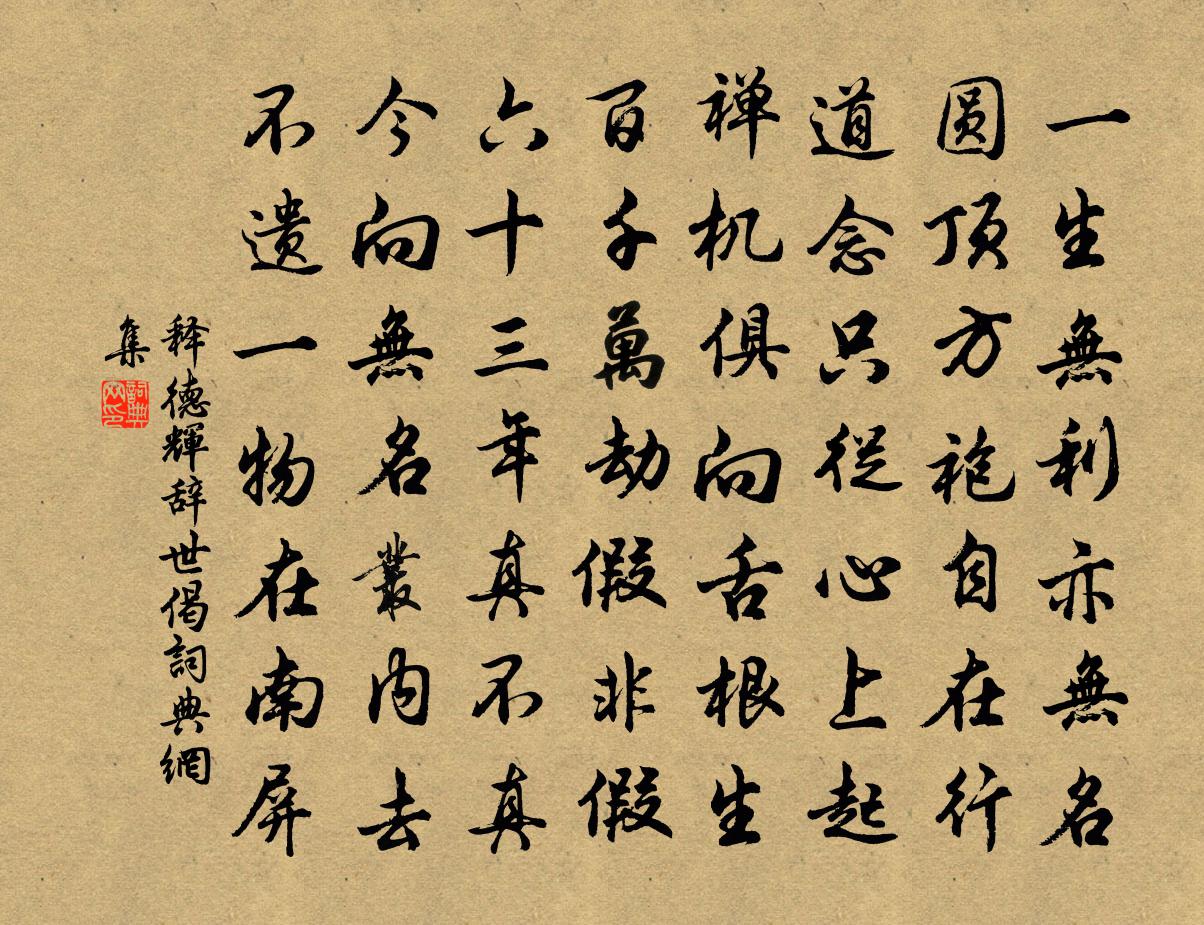 一生無利亦無名
圆顶方袍自在行
道念只從心上起
禅机俱向舌根生
百千萬劫假非假
六十三年真不真
今向無名叢内去
不遗一物在南屏
释德輝辞世偈詞典網
集
詞典
网印